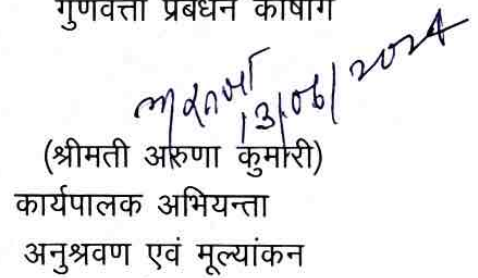 गुणवत्ता प्रबंधन कोषांग
13/06/2024
(श्रीमती अरुणा कुमारी)
कार्यपालक अभियन्ता
अनुश्रवण एवं मूल्यांकन